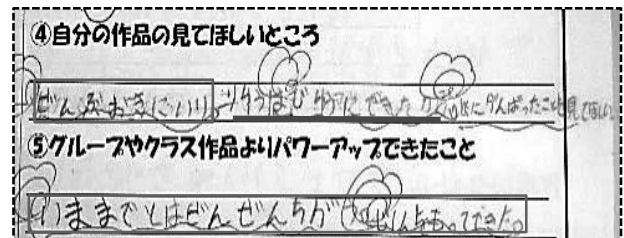 ④自分の作品の見てほしいところ
ぜんぶおきにいり。 できた とにがんばったこと見てほしい
⑤グループやクラス作品よりパワーアップできたこと
いままでとはぜんぜんちが できた。